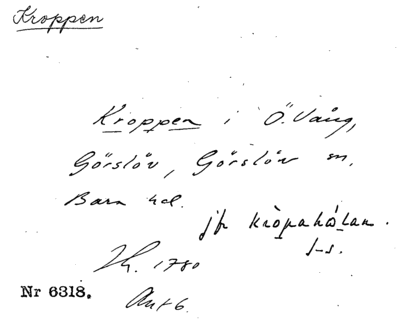 Kroppen
Kroppen i Ö. Vång,
Görslöv, Görslöv sn.
Bara hd.
jfr kròpahålan.
Nr 6318.
1780